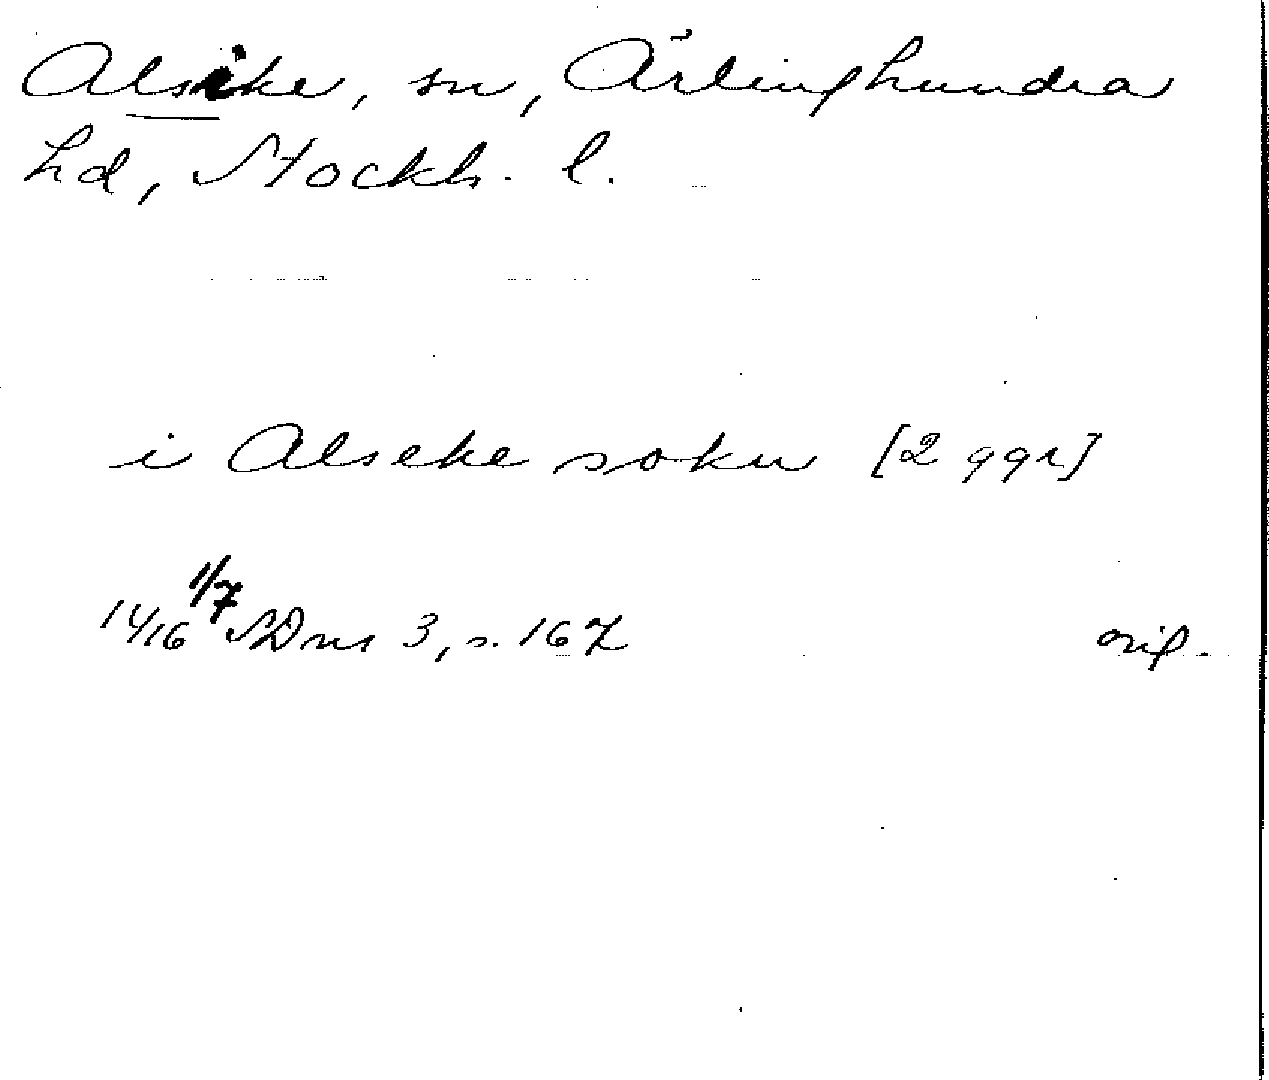 Alsike, sn, Ärlinghundra
hd, Stockh. l.
i Alseke sokn [2 ggr]
1416 1/7 SDns 3, s. 167 orig.